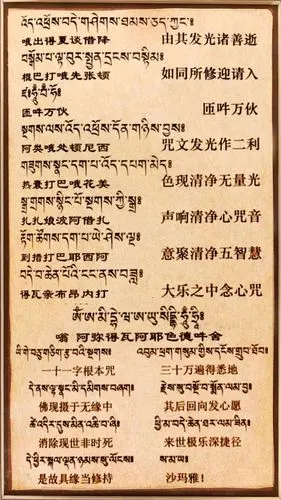 འོད་འཕྲོས་བདེ་གཤེགས་ཐམས་ཅད་ཀྱང་༔
哦出得夏谈借降 由其发光诸善逝
བསྒོམ་པ་ལྟ་བུར་སྤྱན་དྲངས་བསྟིམ༔
棍巴打哦先张顿 如同所修迎请入
ཛཿཧཱུྃ་བཾ་ཧོ༔
匝吽万伙 匝吽万伙
སྔགས་ལས་འོད་འཕྲོས་དོན་གཉིས་བྱས༔
阿类哦处顿尼西 咒文发光作二利
གཟུགས་སྣང་དག་པ་འོད་དཔག་མེད༔
热囊打巴哦花美 色现清净无量光
སྒྲ་གྲགས་སྙིང་པོ་སྔགས་ཀྱི་སྒྲ༔
扎扎娘波阿借扎 声响清净心咒音
རྟོག་ཚོགས་དག་པ་ཡེ་ཤེས་ལྔ༔
到措打巴耶西阿 意聚清净五智慧
བདེ་བ་ཆེན་པོའི་ངང་ནས་བཟླ༔
得瓦亲布昂内打 大乐之中念心咒
ཨོཾ་ཨ་མི་དྷེ་ཝ་ཨ་ཡུ་སིདྡྷི་ཧཱུྃ་ཧྲཱི༔
嗡 阿弥得瓦阿耶色德吽舍
ཡི་གེ་བཅུ་གཅིག་རྩ་བའི་སྔགས༔ འབུམ་ཕྲག་གསུམ་གྱིས་དངོས་གྲུབ་ཐོབ༔
一十一字根本咒 三十万遍得悉地
དེ་ནས་ལྷ་སྣང་མི་དམིགས་བཞག༔ རྗེས་སུ་བསྔོ་བ་སྨོན་ལམ་བྱ༔
佛现摄于无缘中 其后回向发心愿
ཚེ་འདིར་དུས་མིན་འཆི་བ་ཞི༔ ཕྱི་མ་བདེ་ཆེན་ཟབ་ལམ་ཉེ༔
消除现世非时死 来世极乐深捷径
དེ་ཕྱིར་སྐལ་ལྡན་ཉམས་སུ་ལོངས༔ ས་མ་ཡ༔
是故具缘当修持 沙玛雅！